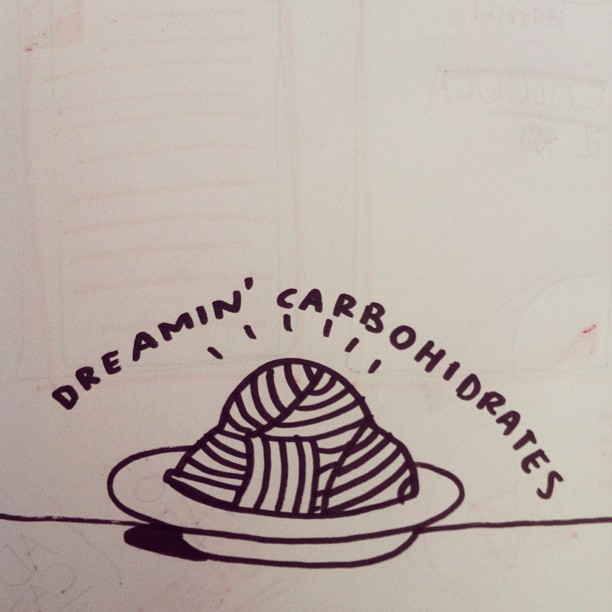 DREAMIN' CARBOHIDRATES